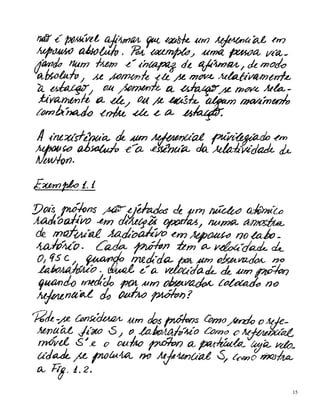 não é possível afirmar que existe um referencial em
repouso absoluto. Por exemplo, uma pessoa via-
jando num trem é incapaz de afirmar, de modo
absoluto, se somente ele se move relativamente
à estação, ou somente a estação se move rela-
tivamente a ele, ou se existe algum movimento
combinado entre ele e a estação.
A inexistência de um referencial privilegiado em
repouso absoluto é a essência da Relatividade de
Newton.
Exemplo 1.1
Dois prótons são ejetados de um núcleo atômico
radioativo em direções opostas, numa amostra
de material radioativo em repouso no labo-
ratório. Cada próton tem a velocidade de
0,95 c, quando medida por um observador no
laboratório. Qual é a velocidade de um próton
quando medido por um observador colocado no
referencial do outro próton?
Pode-se considerar um dos prótons como sendo o refe-
rencial fixo S, o laboratório como o referencial
móvel S' e o outro próton a partícula cuja velo-
cidade se procura no referencial S, como mostra
a Fig. 1.2.
15